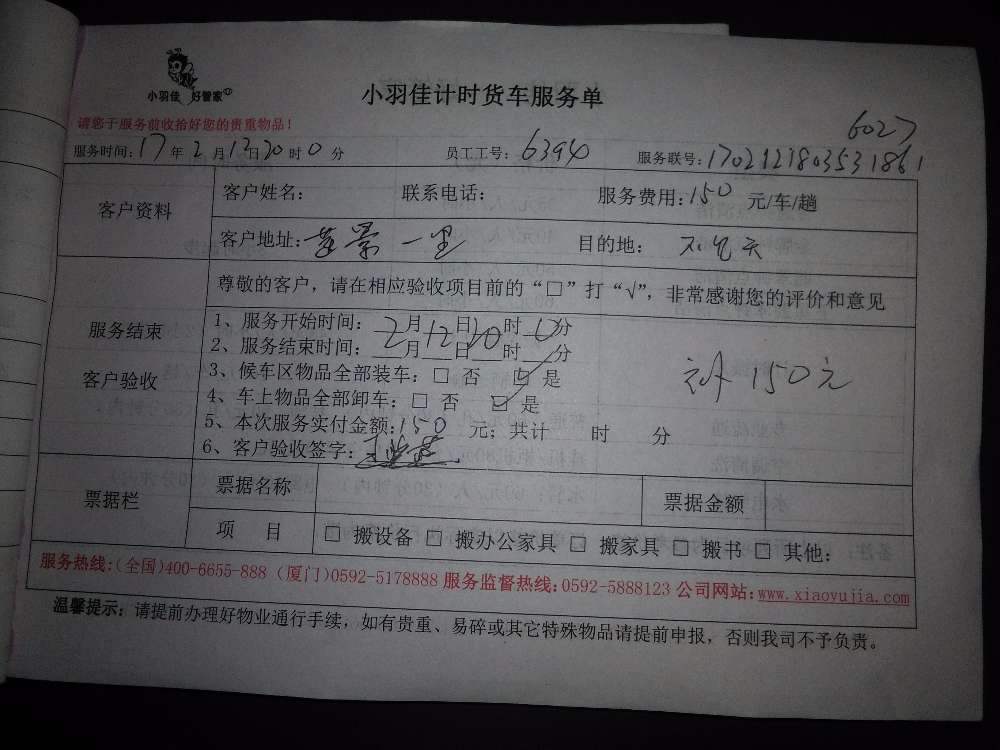 小羽佳 好管家
小羽佳计时货车服务单
请您于服务前收拾好您的贵重物品！
6027
服务时间：17年2月12日20时0分 员工工号：6394 服务联号：1702121803531861
客户资料
客户姓名： 联系电话： 服务费用：150 元/车/趟
客户地址： 景一里 目的地：
服务结束
客户验收
尊敬的客户，请在相应验收项目前的“□”打“√”，非常感谢您的评价和意见
1、服务开始时间：2月12日20时0分
2、服务结束时间：___月___日___时___分
3、候车区物品全部装车：□ 否 ☑ 是
4、车上物品全部卸车：□ 否 ☑ 是
5、本次服务实付金额：150 元；共计 时 分
6、客户验收签字：
150元
票据栏
票据名称 票据金额
项 目 □ 搬设备 □ 搬办公家具 □ 搬家具 □ 搬书 □ 其他：
服务热线：(全国)400-6655-888 (厦门)0592-5178888 服务监督热线：0592-5888123 公司网站：www.xiaoyujia.com
温馨提示：请提前办理好物业通行手续，如有贵重、易碎或其它特殊物品请提前申报，否则我司不予负责。